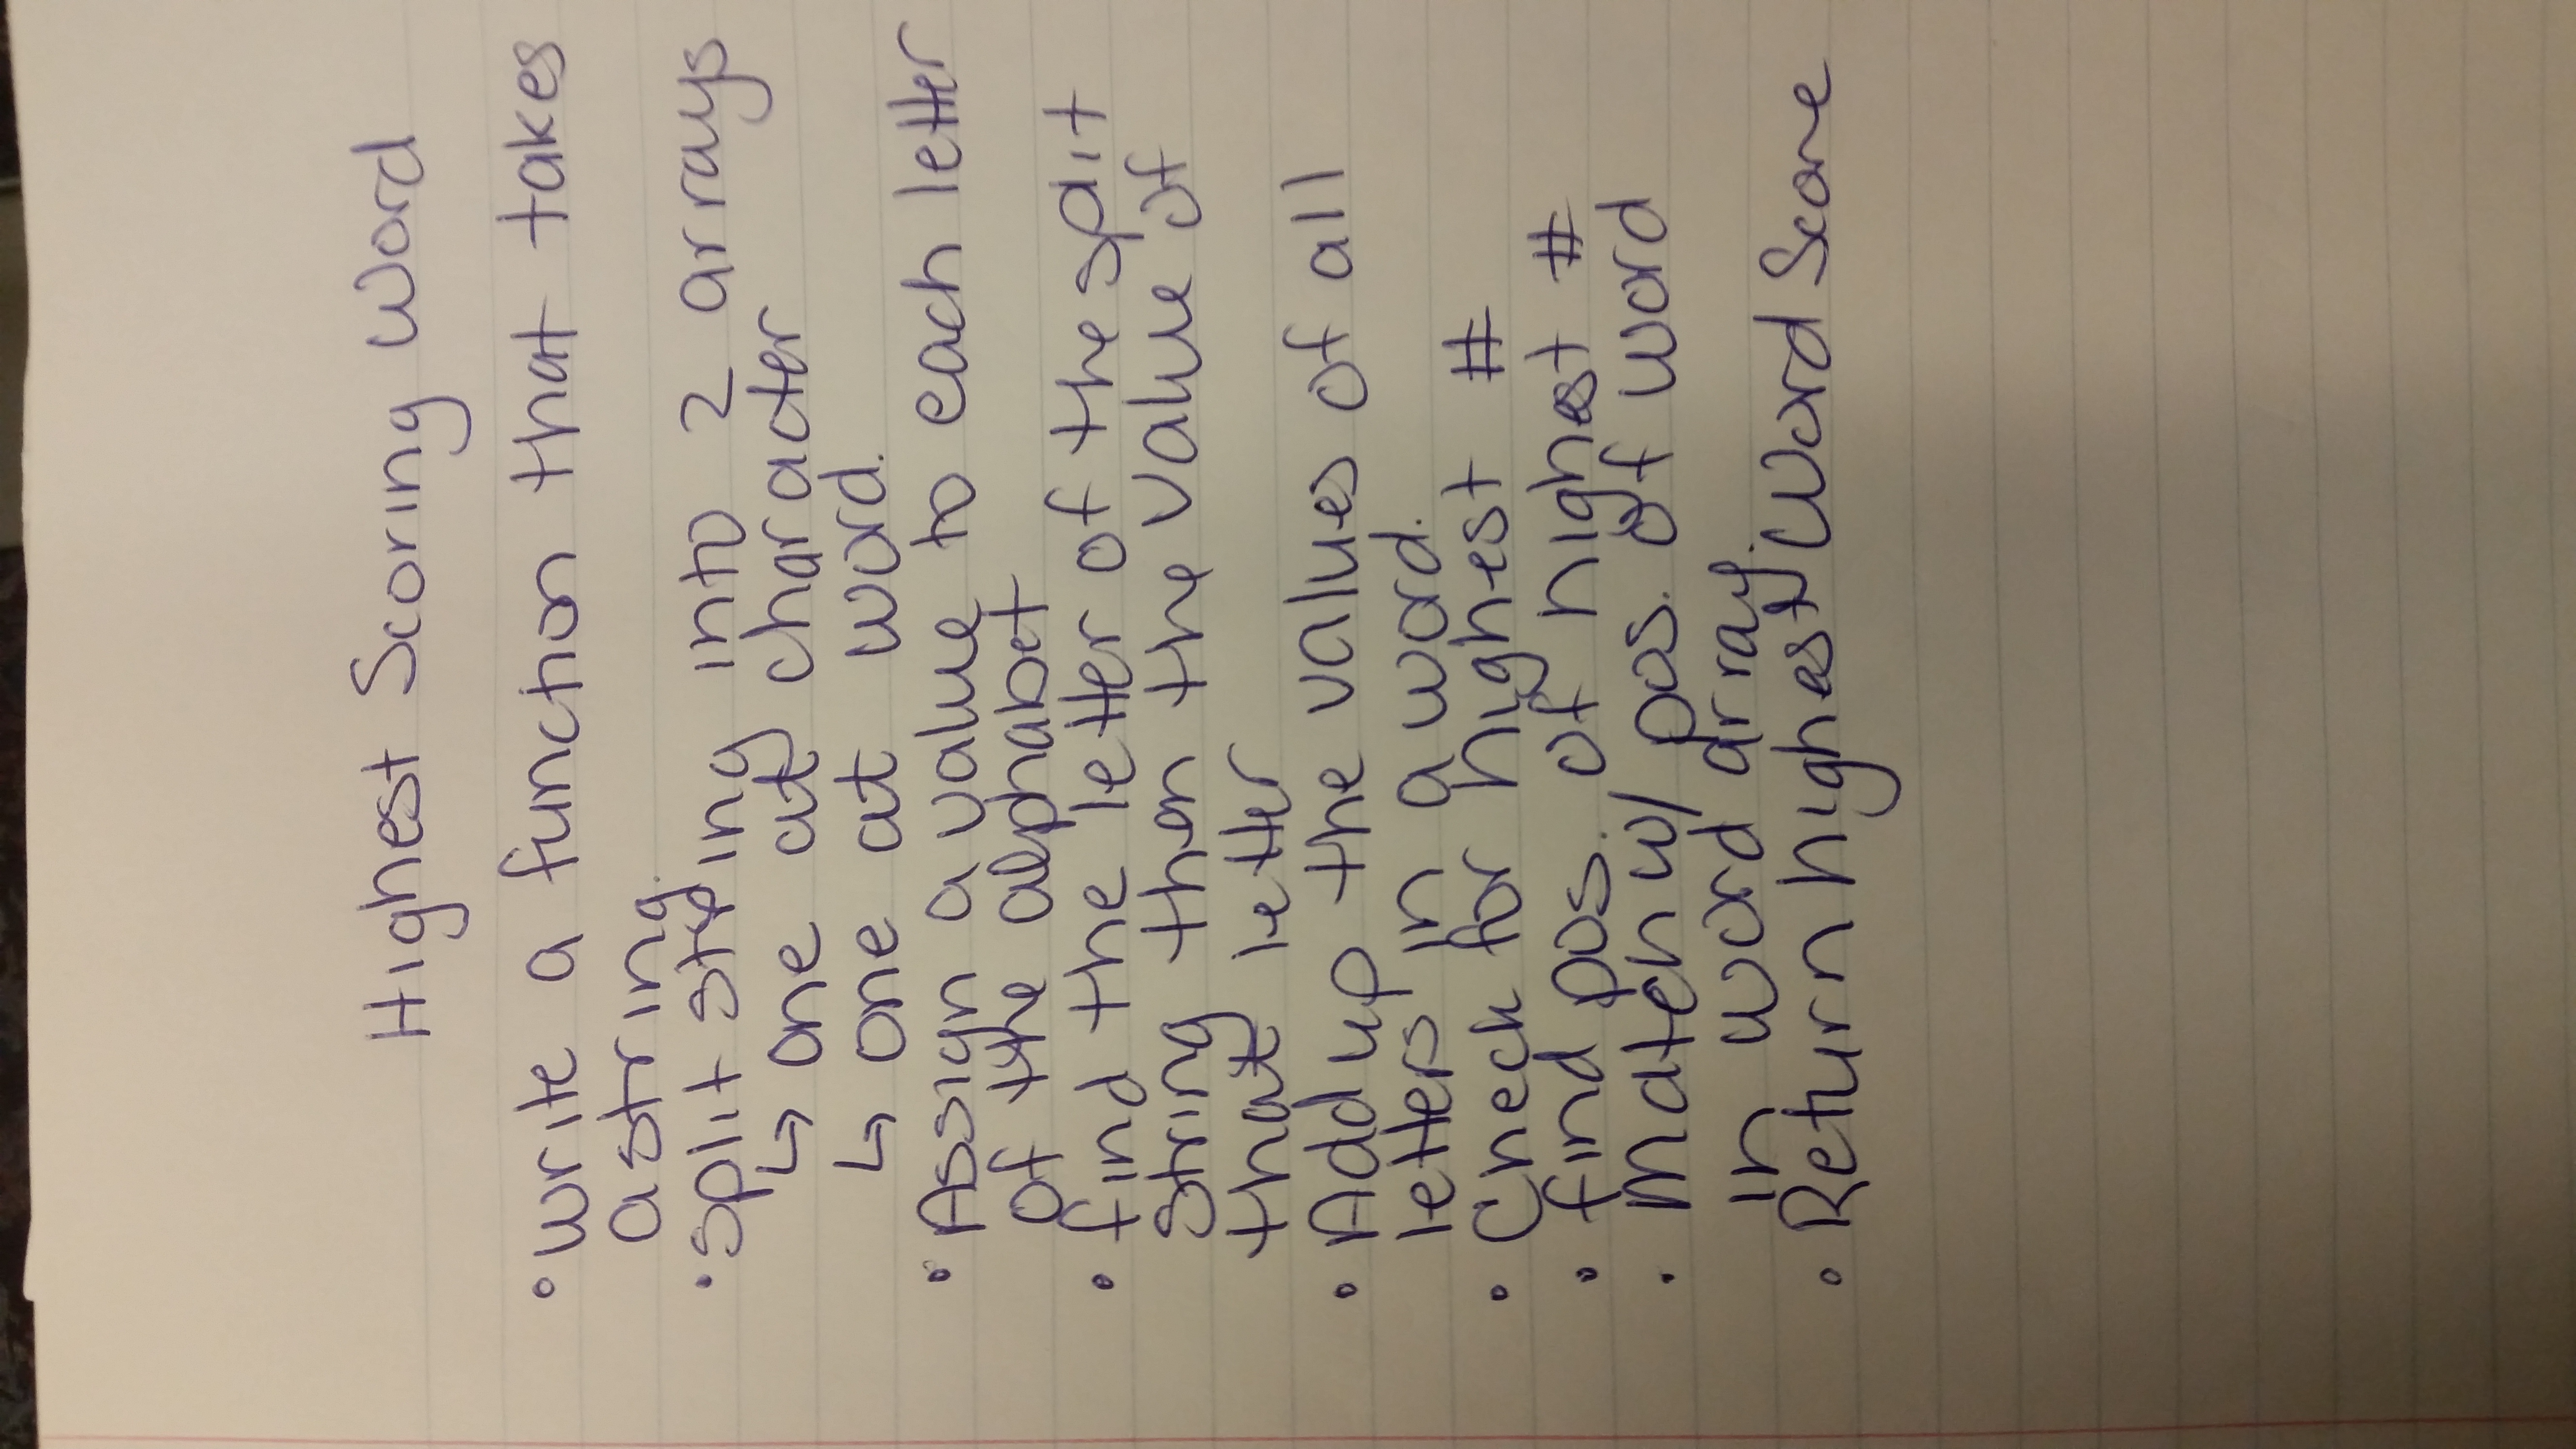 Highest Scoring Word
• write a function that takes
a string.
• split string into 2 arrays
↳ one at character
↳ one at word.
• Assign a value to each letter
of the alphabet
• find the letter of the split
string then the value of
that letter
• Add up the values of all
letters in a word.
• Check for highest #
• find pos. of highest #
• Match w/ pos. of word
in word array.
• Return highest Word Score